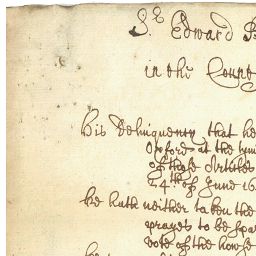 Sr Edward
in the County
His Delinquency that he
Oxford at the
of those Articles
24th of June 16
he hath neither to
prayes to be
vote of the howse